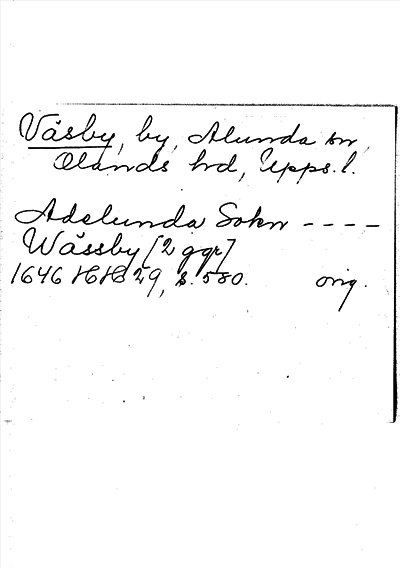 Väsby, by, Alunda sn,
Olands hd, Upps. l.
Adelunda Sokn ----
Wässby [2 ggr]
1646 HH 29, s. 580. orig.